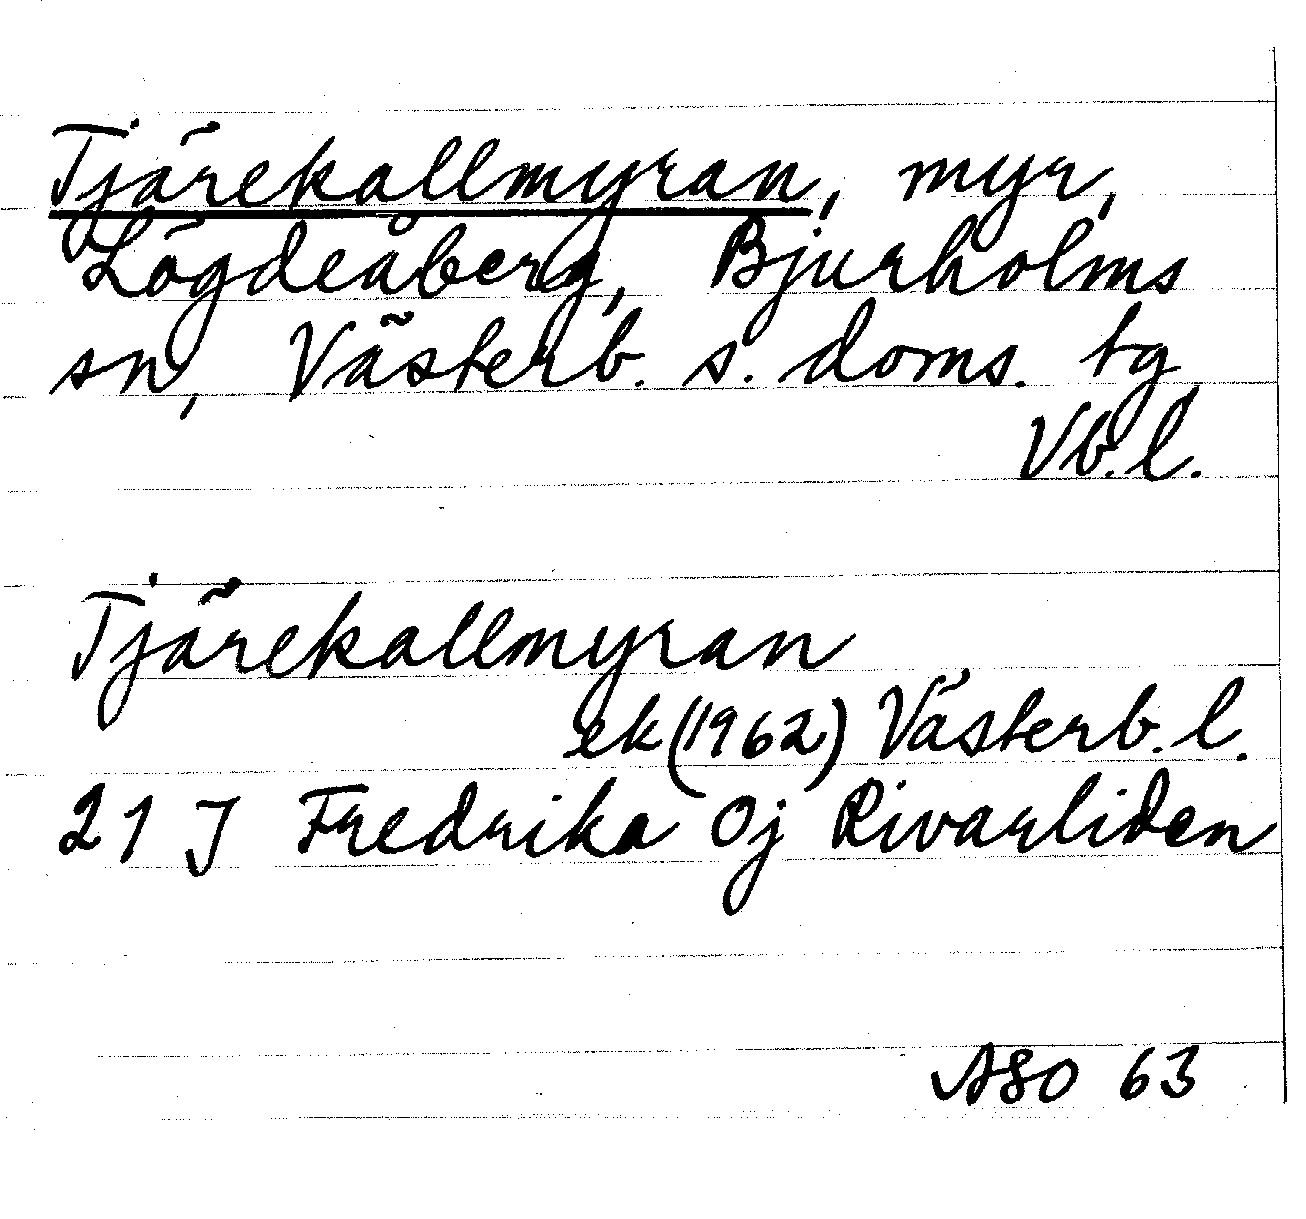 Tjärekallmyran, myr,
Lögdeåberg, Bjurholms
sn, Västerb. s. doms. tg,
Vb. l.
Tjärekallmyran
ek (1962) Västerb. l.
21 J Fredrika Oj Rivarliden
ASO 63